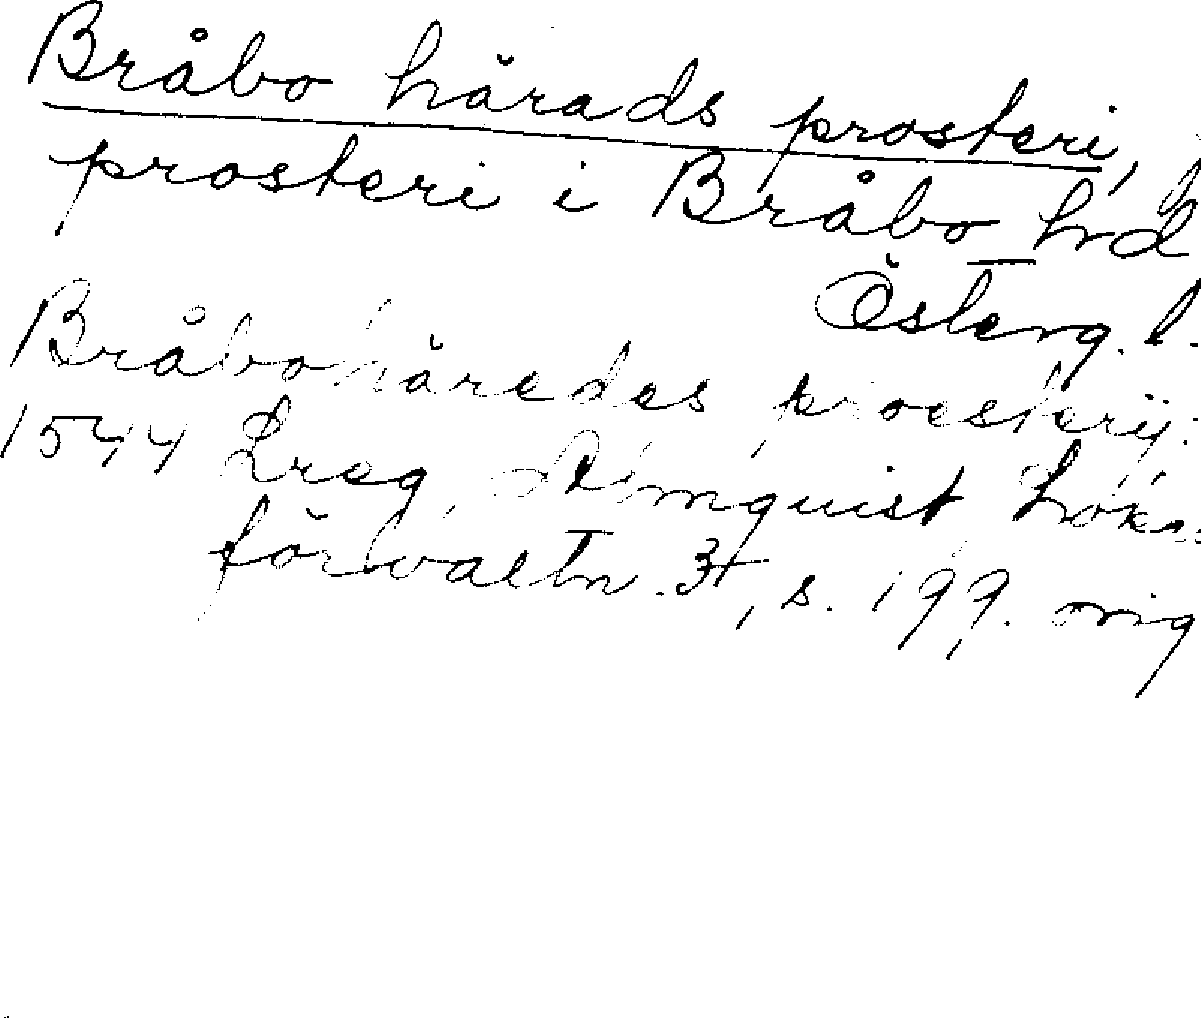 Bråbo härads prosteri,
prosteri i Bråbo hd
Österg. l.
Bråbohäredes proesterij:
1544 Lreg, Almquist Loka
förvaltn. 3, s. 199. orig